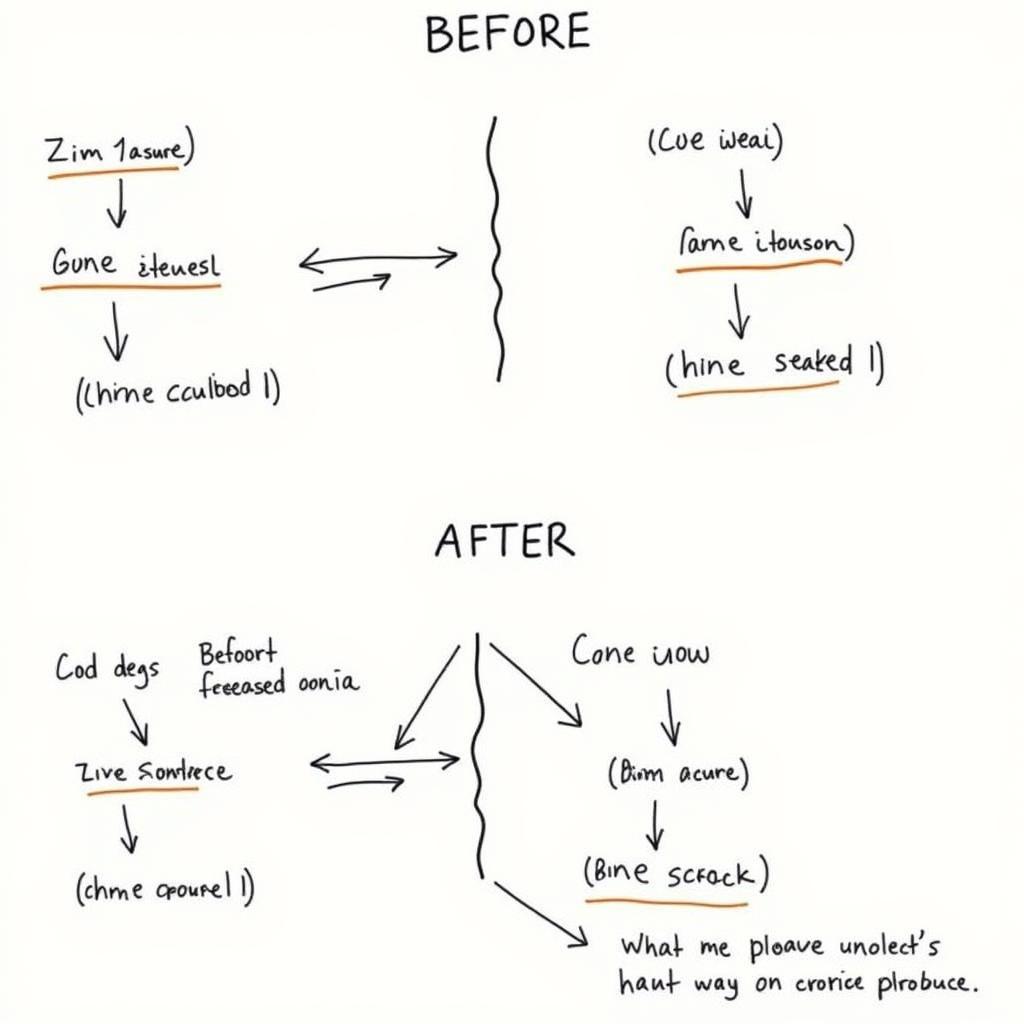 BEFORE
Zim 1asure)
(Cue iweai)
Gune iteuesl
fame itouson)
(chime cculbod I)
(hine seaked I)
AFTER
Cod degs
Befoort
feeeased oonia
Cone uow
Zive Sontrece
(Bim acure)
(chme cpourel I)
(Bine scrock)
What me ploave unolect's
haut way on crorice plrobuce.